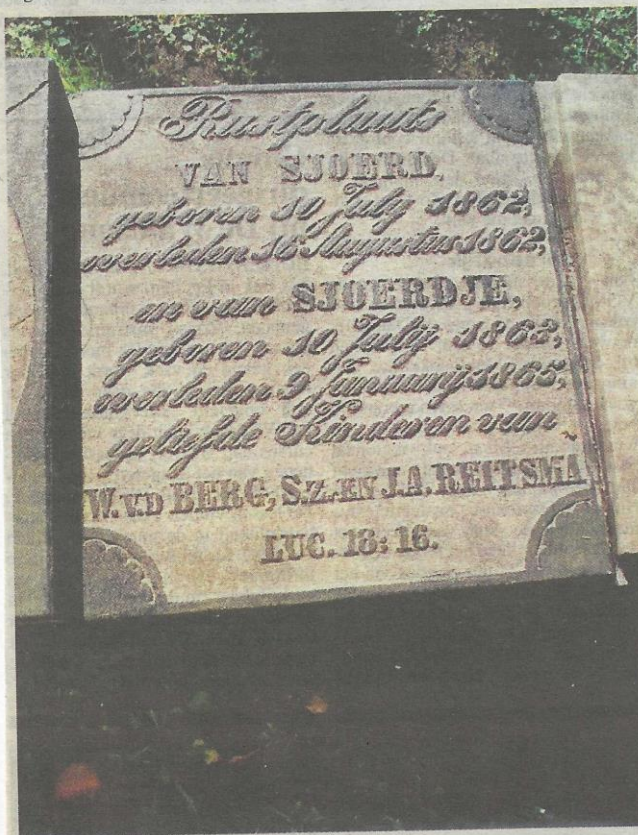 Rustplaats
VAN SJOERD,
geboren 10 July 1862,
overleden 16 Augustus 1862,
en van SJOERDJE,
geboren 10 Julij 1863,
overleden 9 Januarij 1865,
geliefde Kinderen van
W. V.D BERG, S.Z. EN J.A. REITSMA
LUC. 18: 16.